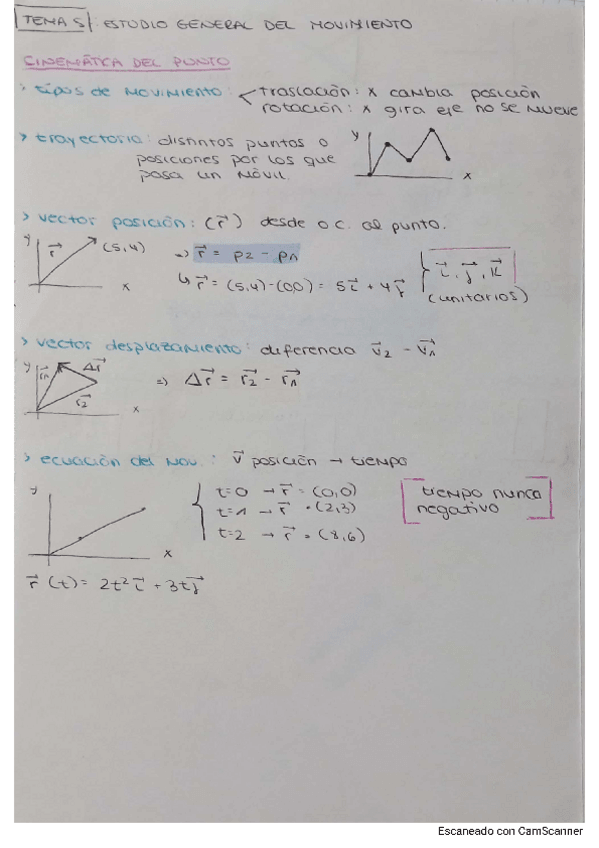 TEMA 5 ESTUDIO GENERAL DEL MOVIMIENTO
CINEMÁTICA DEL PUNTO
> tipos de MOVIMIENTO: traslación: x cambia posición
rotación: x gira eje no se mueve
> trayectoria: distintos puntos o
posiciones por los que
pasa un móvil.
y
x
> vector posición: (r⃗) desde o c. al punto.
y
r⃗
(5,4)
x
=> r⃗ = p2 - p1
↳ r⃗ = (5,4)-(0,0) = 5i⃗ + 4j⃗
i⃗, j⃗, k⃗
(unitarios)
> vector desplazamiento: diferencia v⃗2 - v⃗1
y
r⃗1
Δr⃗
r⃗2
x
=> Δr⃗ = r⃗2 - r⃗1
> ecuación del MOV.: v⃗ posición → tiempo
y
x
t=0 → r⃗ = (0,0)
t=1 → r⃗ = (2,3)
t=2 → r⃗ = (8,6)
tiempo nunca
negativo
r⃗(t) = 2t²i⃗ + 3tj⃗
Escaneado con CamScanner